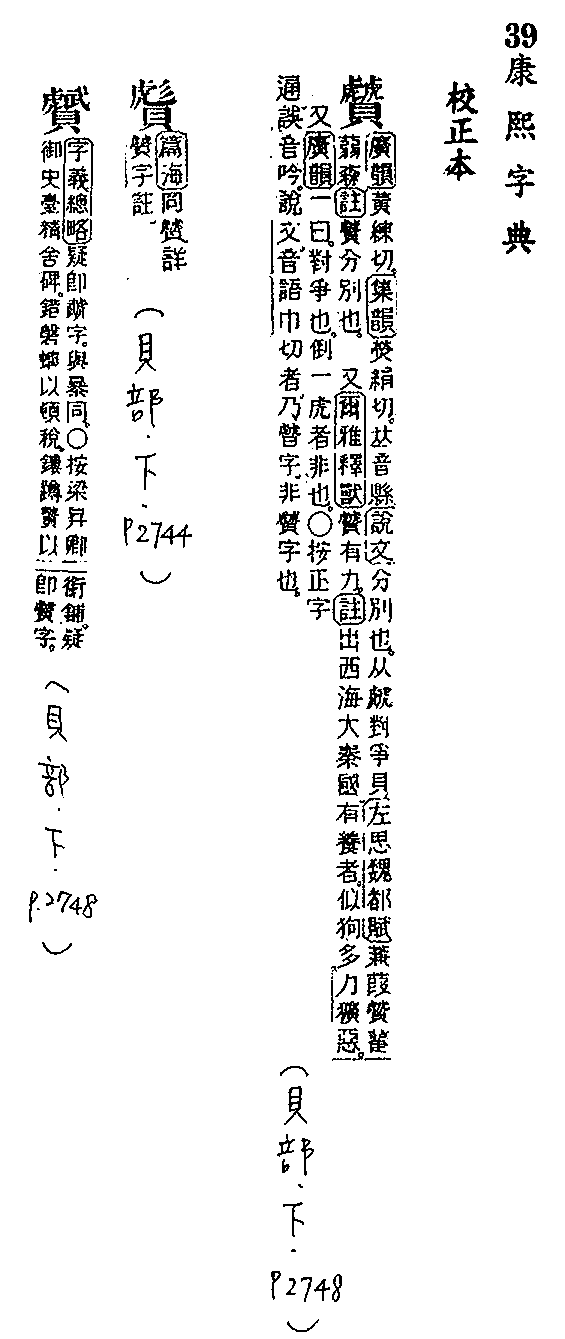 39 康熙字典
校正本
贙
廣韻黃練切。集韻熒絹切。𠀤音縣說文分別也。从虤對爭貝左思魏都賦蒹葭贙雚
蒻森註贙分別也。又爾雅釋獸贙有力。註出西海大秦國有養者。似狗多力獷惡。
又廣韻一曰。對爭也。倒一虎者非也。○按正字
通誤音吟。說文音語巾切者。乃字非贙字也。
(貝部.下.P2748)
篇海同贙詳
贙字註
(貝部.下.P2744)
字義總略疑卽虣字。與暴同。○按梁昇卿
御史臺精舍碑。錯磐螂以頓稅。蹲以
銜鋪。疑
卽贙字。
(貝部.下.P.2748)